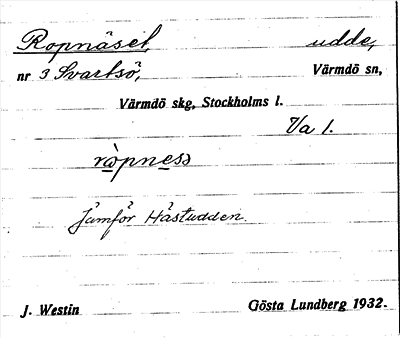 Ropnäset, udde,
nr 3 Svartsö, Värmdö sn,
Värmdö skg, Stockholms l.
Va 1.
ròpness
Jämför Hästudden.
J. Westin Gösta Lundberg 1932.